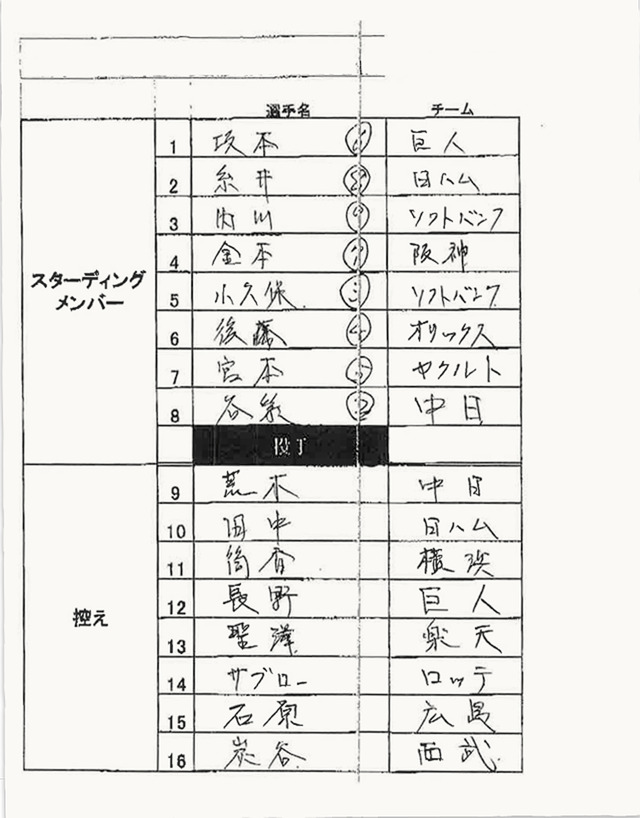 選手名 チーム
スターディングメンバー
1 坂本 ⑥ 巨人
2 糸井 ⑧ 日ハム
3 内川 ⑨ ソフトバンク
4 金本 ⑦ 阪神
5 小久保 ③ ソフトバンク
6 後藤 ④ オリックス
7 宮本 ⑤ ヤクルト
8 谷繁 ② 中日
投手
控え
9 荒木 中日
10 田中 日ハム
11 筒香 横浜
12 長野 巨人
13 聖澤 楽天
14 サブロー ロッテ
15 石原 広島
16 炭谷 西武